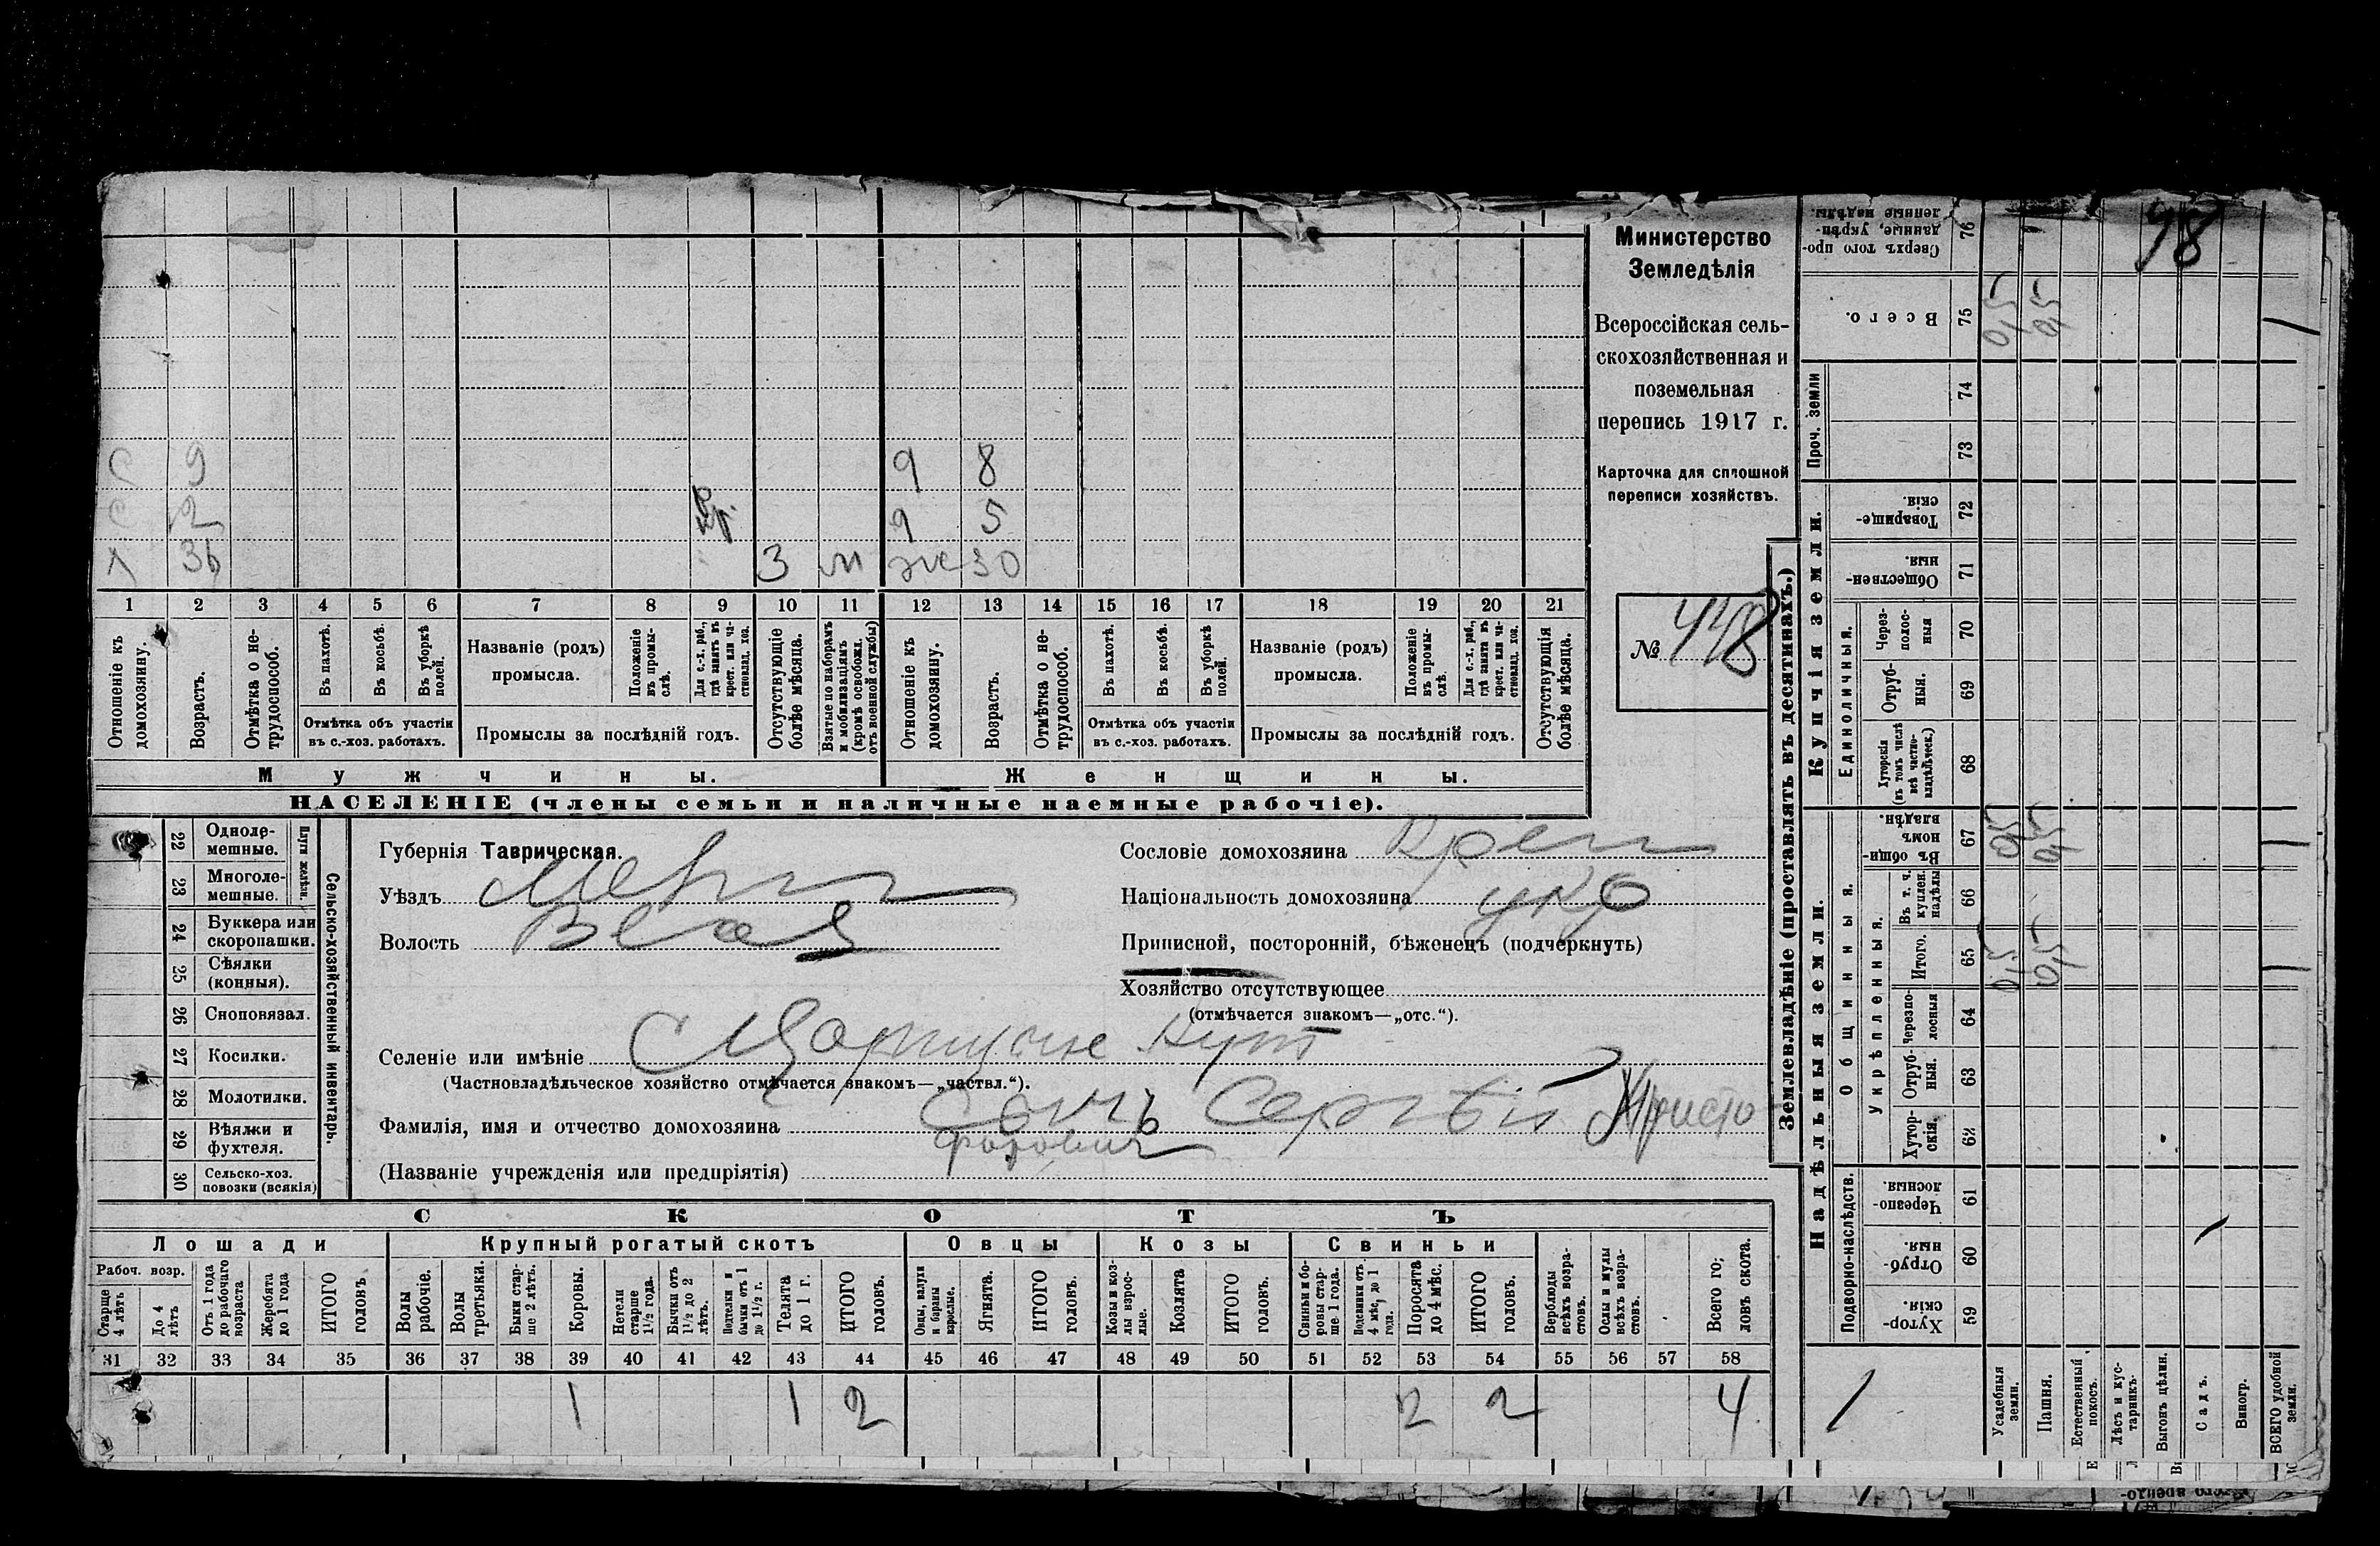 98
С 9 9 8
С 2 кр. 9 5
Х 36 3 м ж 30
1 2 3 4 5 6 7 8 9 10 11 12 13 14 15 16 17 18 19 20 21
Отношеніе къ домохозяину.
Возрастъ.
Отмѣтка о нетрудоспособ.
Въ пахотѣ.
Въ косьбѣ.
Въ уборкѣ полей.
Отмѣтка объ участіи въ с.-хоз. работахъ.
Названіе (родъ) промысла.
Положеніе въ промыслѣ.
Для с.-х. раб., гдѣ занятъ въ крест. или частновлад. хоз.
Промыслы за послѣдній годъ.
Отсутствующіе болѣе мѣсяца.
Взятые по наборамъ и мобилизаціямъ (кромѣ освобожд. отъ военной службы)
Отношеніе къ домохозяину.
Возрастъ.
Отмѣтка о нетрудоспособ.
Въ пахотѣ.
Въ косьбѣ.
Въ уборкѣ полей.
Отмѣтка объ участіи въ с.-хоз. работахъ.
Названіе (родъ) промысла.
Положеніе въ промыслѣ.
Для с.-х. раб., гдѣ занята въ крест. или частновлад. хоз.
Промыслы за послѣдній годъ.
Отсутствующія болѣе мѣсяца.
Мужчины.
Женщины.
НАСЕЛЕНІЕ (члены семьи и наличные наемные рабочіе).
Министерство
Земледѣлія
Всероссійская сель-
скохозяйственная и
поземельная
перепись 1917 г.
Карточка для сплошной
переписи хозяйствъ.
№ 448
22 Одноле-
мешные.
23 Многоле-
мешные.
Плуги желѣзн.
24 Буккера или
скоропашки.
25 Сѣялки
(конныя).
26 Сноповязал.
27 Косилки.
28 Молотилки.
29 Вѣялки и
фухтеля.
30 Сельско-хоз.
повозки (всякія)
Сельско-хозяйственный инвентарь.
Губернія Таврическая.
Уѣздъ
Волость
Сословіе домохозяина Крест
Національность домохозяина укр
Приписной, посторонній, бѣженецъ (подчеркнуть)
Хозяйство отсутствующее
(отмѣчается знакомъ—„отс.“).
Селеніе или имѣніе С Царицыне Кут
(Частновладѣльческое хозяйство отмѣчается знакомъ—„частвл.“).
Фамилія, имя и отчество домохозяина Сомъ Сергѣй Христо
форович
(Названіе учрежденія или предпріятія)
СКОТЪ
Лошади
Крупный рогатый скотъ
Овцы
Козы
Свиньи
Рабоч. возр.
Старше 4 лѣтъ
До 4 лѣтъ
Отъ 1 года до рабочаго возраста
Жеребята до 1 года
ИТОГО головъ
Волы рабочіе.
Волы третьяки.
Быки старше 2 лѣтъ.
Коровы.
Нетели старше 1½ года.
Бычки отъ 1½ до 2 лѣтъ.
Подтелки и бычки отъ 1 до 1½ г.
Телята до 1 г.
ИТОГО головъ.
Овцы, валухи и бараны взрослые.
Ягнята.
ИТОГО головъ.
Козы и козлы взрослые.
Козлята
ИТОГО головъ.
Свиньи и боровы старше 1 года.
Подсвинки отъ 4 мѣс. до 1 года.
Поросята до 4 мѣс.
ИТОГО головъ.
Верблюды всѣхъ возрастовъ.
Ослы и мулы всѣхъ возрастовъ.
Всего головъ скота.
31 32 33 34 35 36 37 38 39 40 41 42 43 44 45 46 47 48 49 50 51 52 53 54 55 56 57 58
1 1 2 2 2 4
Землевладѣніе (проставлять въ десятинахъ.)
Проч. земли
Купчія земли.
Единоличныя.
Надѣльныя земли.
Общинныя.
Укрѣпленныя.
Подворно-наслѣдств.
Сверхъ того проданные, укрѣпленные надѣлы. 76
Всего. 75 0,15 0,15
74
73
Товарищескія. 72
Общественныя. 71
Черезполосныя 70
Отрубныя. 69
Хуторскія (въ томъ числѣ всѣ частновладѣльческ.) 68
Въ общинномъ владѣн. 67 0,15 0,15
Въ т. ч. куплен. надѣлы 66
Итого. 65 0,15 0,15
Черезполосныя 64
Отрубныя. 63
Хуторскія. 62
Черезполосныя. 61
Отрубныя. 60
Хуторскія. 59
Усадебныя земли.
Пашня.
Естественный покосъ.
Лѣсъ и кустарникъ.
Выгонъ цѣлин.
Садъ.
Виногр.
ВСЕГО удобной земли.